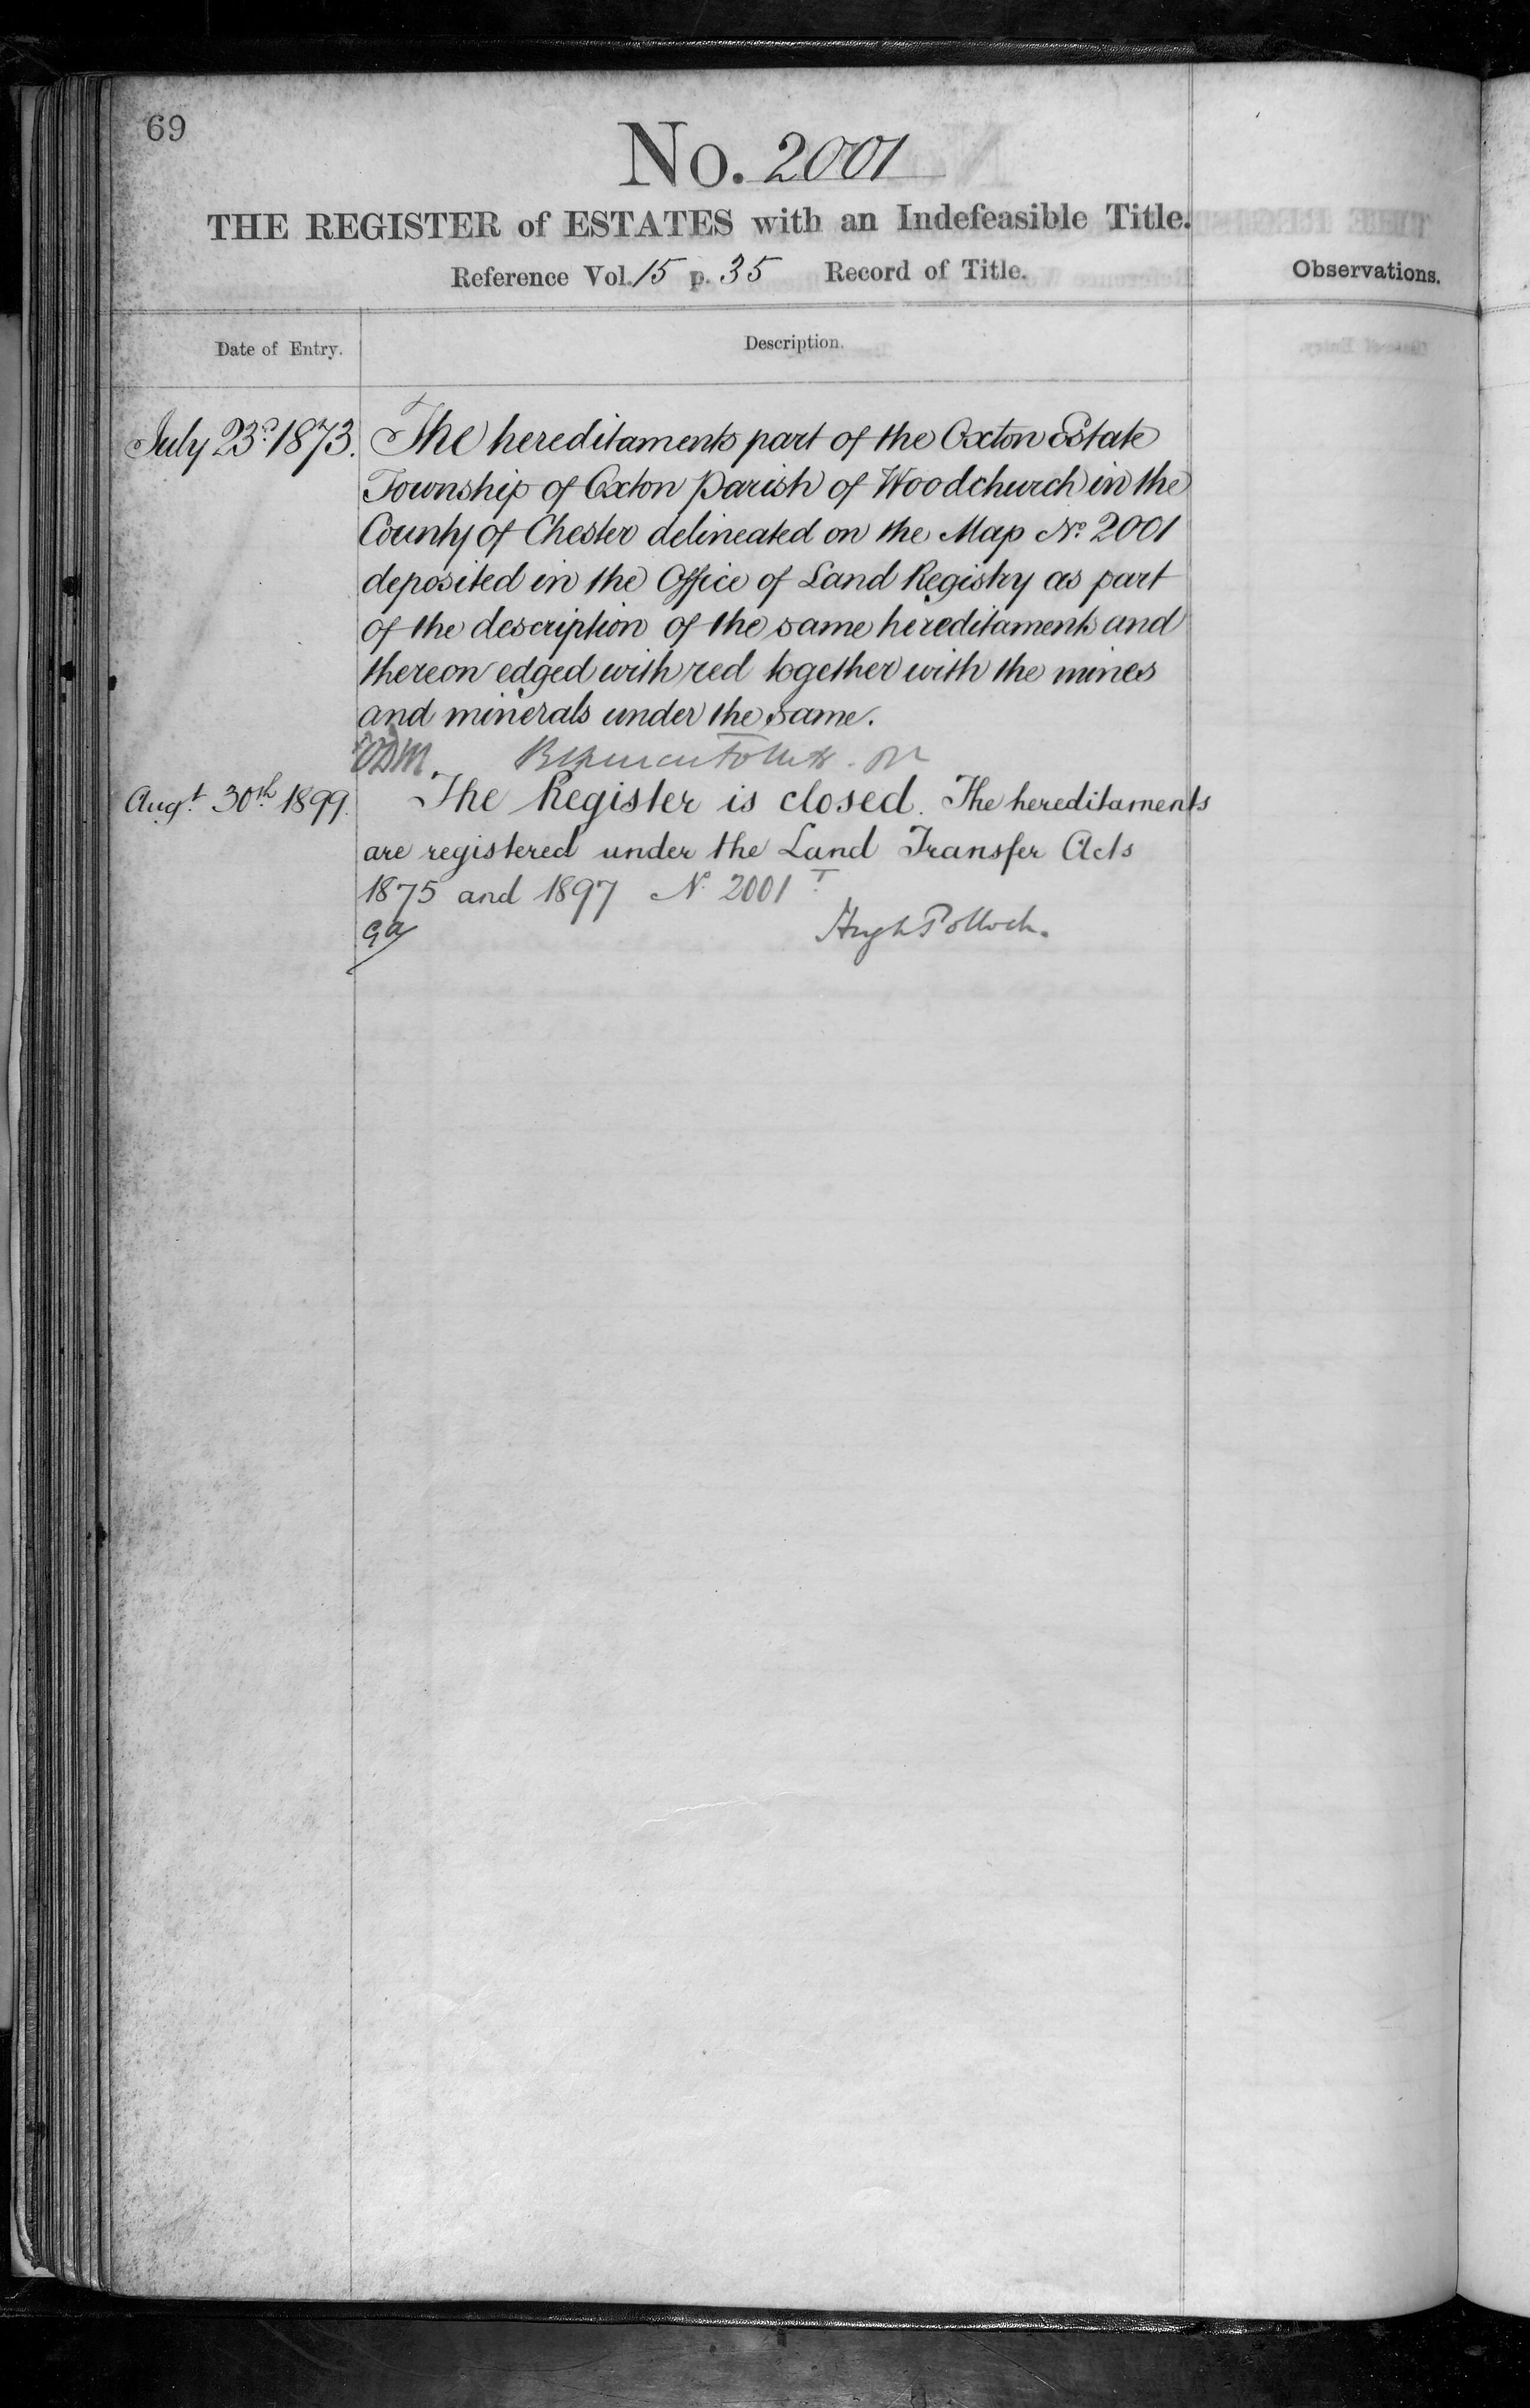 69
No. 2001
THE REGISTER of ESTATES with an Indefeasible Title.
Reference Vol. 15 p. 35 Record of Title.
Observations.
Date of Entry.
Description.
July 23d. 1873. The hereditaments part of the Oxton Estate
Township of Oxton Parish of Woodchurch in the
County of Chester delineated on the Map No. 2001
deposited in the Office of Land Registry as part
of the description of the same hereditaments and
thereon edged with red together with the mines
and minerals under the same.
Augt. 30th. 1899. The Register is closed. The hereditaments
are registered under the Land Transfer Acts
1875 and 1897 No. 2001 T.
Hugh Pollock.